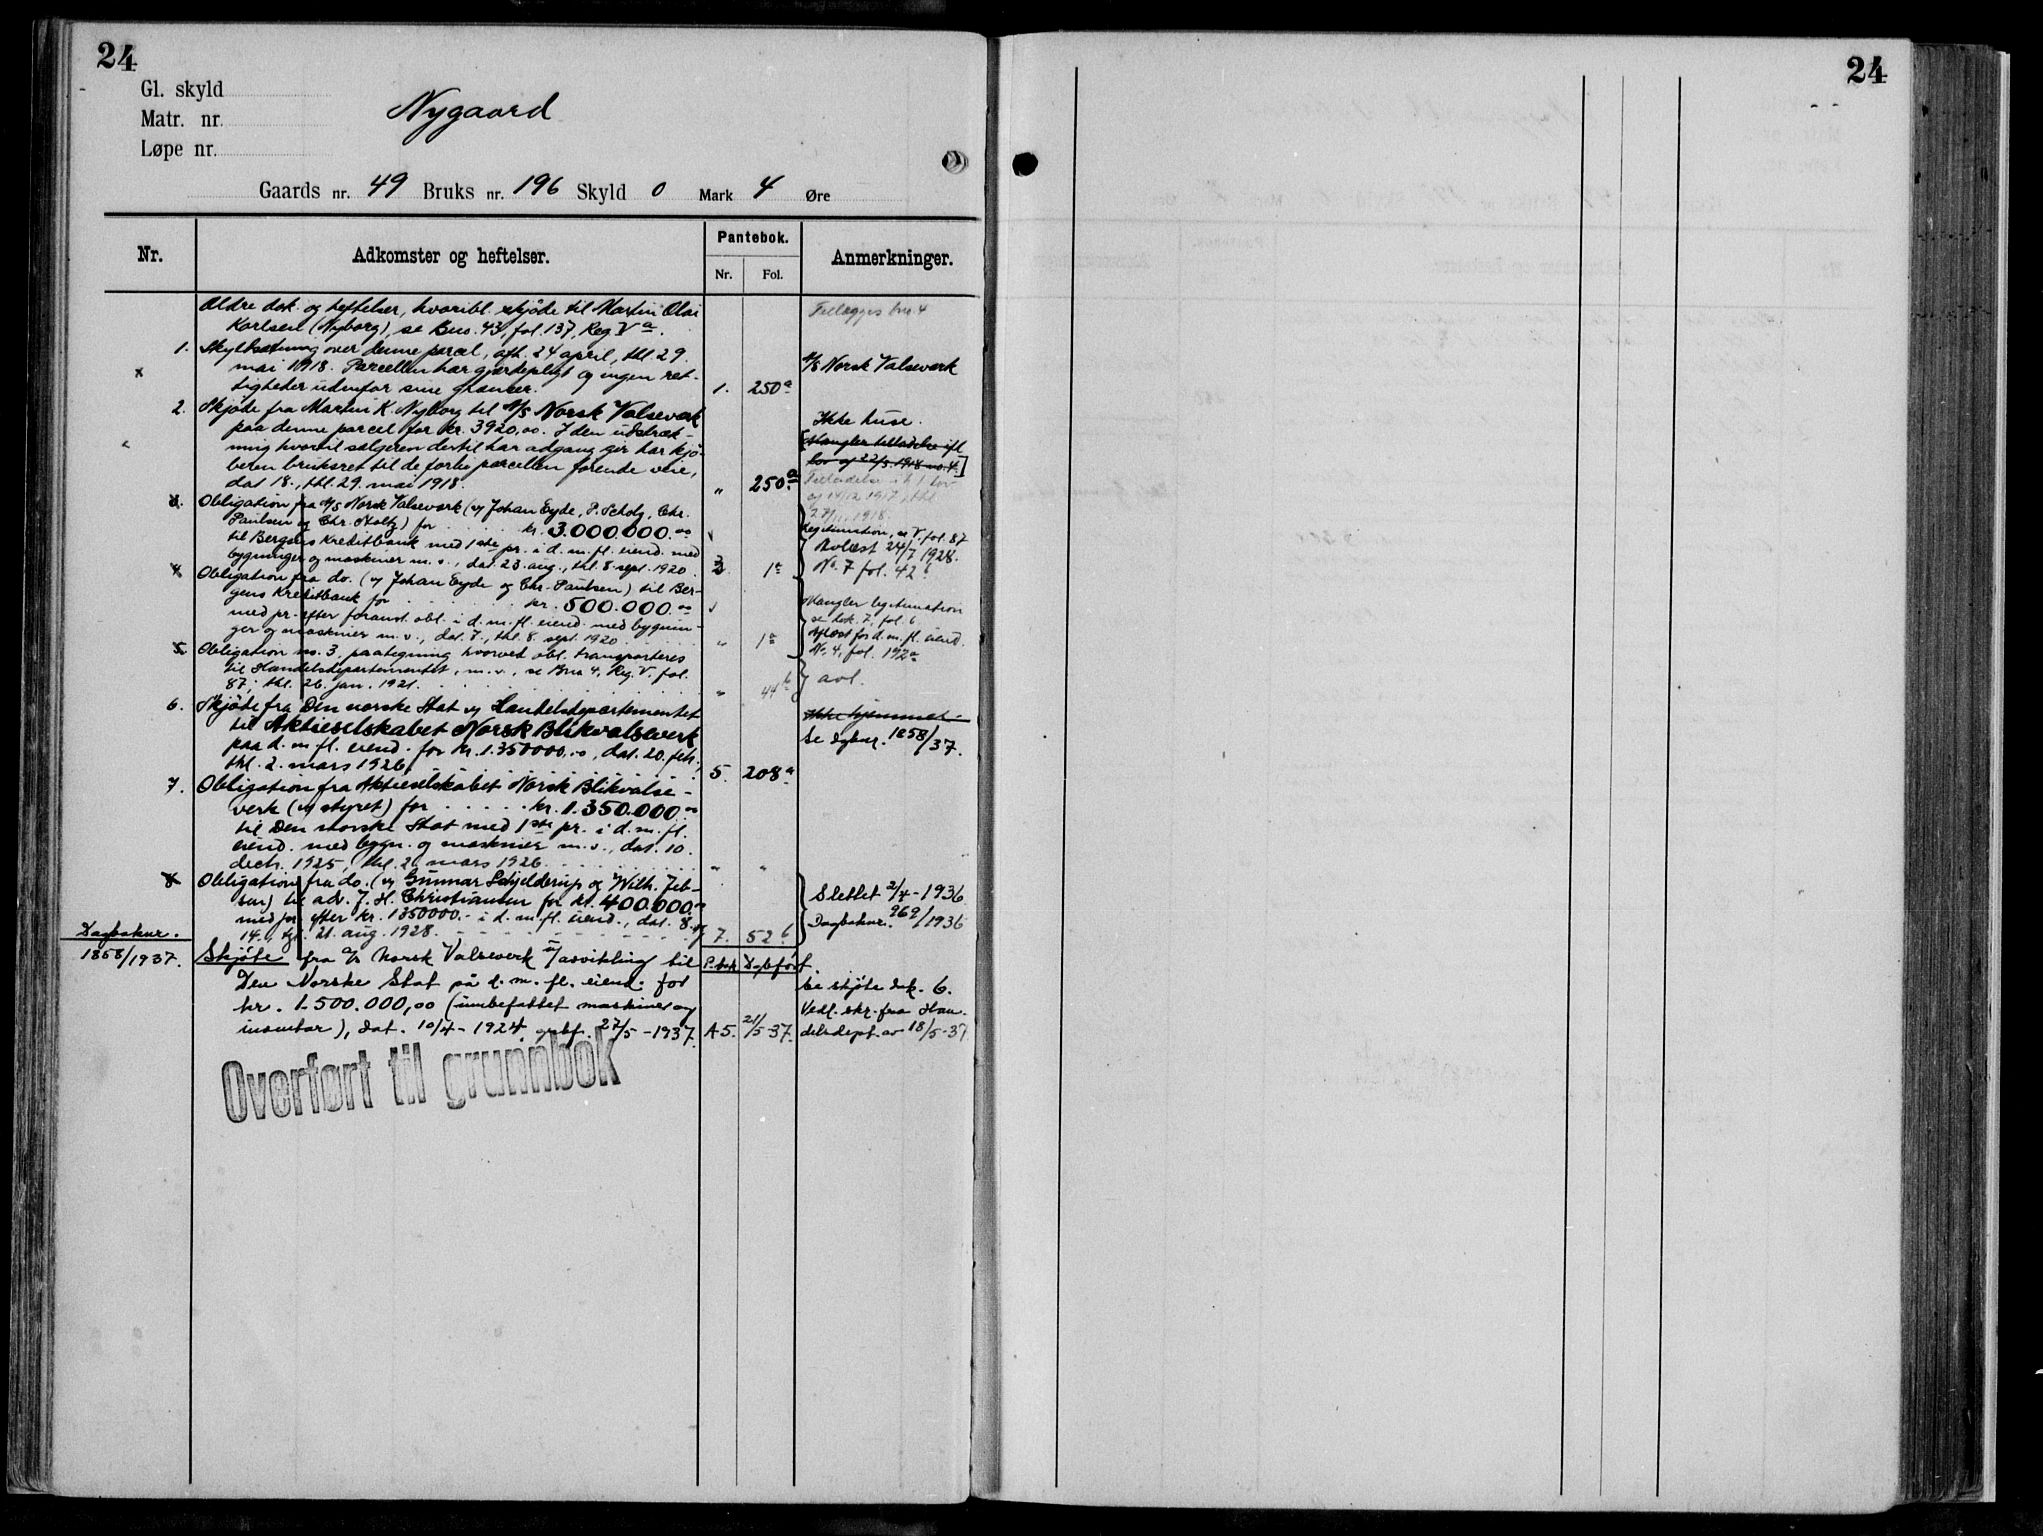 24
24
Gl. skyld
Matr. nr.
Løpe nr.
Nygaard
Gaards nr. 49 Bruks nr. 196 Skyld 0 Mark 4 Øre
Nr.
Adkomster og heftelser.
Pantebok.
Nr. Fol.
Anmerkninger.
Ældre dok. og heftelser, hvoribl. skjøde til Martin Olai
Karlsen (Nyborg), se Bno. 43, fol. 137, Reg. V a.
Tillægges bno 4
1. Skyldsætning over denne parcel, afh. 24 april, thl. 29.
mai 1918. Parcellen har gjærdepligt og ingen ret-
tigheder udenfor sine grænser. 1. 250 a
A/S Norsk Valseverk
2. Skjøde fra Martin K. Nyborg til A/S Norsk Valseverk
paa denne parcel for kr. 3920,00. I den udstræk-
ning hvortil sælgeren dertil har adgang gir har kjø-
beren bruksret til de forbi parcellen førende veie,
dat 18., thl. 29. mai 1918. " 250 a
Ikke huse.
[Mangler tilladelse ifl.
lov af 22/3. 1918 no. 4.]
Tilladelse i h. t. lov
og 14/12 1917, thl.
27/11. 1918.
3. Obligation fra A/S Norsk Valseverk (v/ Johan Eyde, P. Scholz, Chr.
Paulsen og Chr. Stoltz) for kr. 3.000.000.00
til Bergens Kreditbank med 1ste pr. i d. m. fl. eiend. med
bygninger og maskiner m. v., dat. 23. aug., thl. 8. sept. 1920. 3. 1 a
Legitimation, se V. fol. 87
Avlæst 24/7 1928.
No. 7 fol. 42 b
4. Obligation fra do. (v/ Johan Eyde og Chr. Paulsen) til Ber-
gens Kreditbank for kr. 500.000.00
med pr. efter foranst. obl. i d. m. fl. eiend. med bygnin-
ger og maskiner m. v., dat. 7., thl. 8. sept. 1920 " 1 a
Mangler legitimation
se dok. 7, fol. 6
Aflæst for d. m. fl. eiend.
No. 4, fol. 192 a
5. Obligation no. 3, paategning hvorved obl. transporteres
til Handelsdepartementet, m. v., se Bno 4, Reg. V. fol.
87; thl. 26. jan. 1921. " 44 b
avl.
6. Skjøte fra Den norske Stat v/ Handelsdepartementet
til Aktieselskabet Norsk Blikvalseverk
paa d. m. fl. eiend. for kr. 1.350000.00, dat. 20. feb.,
thl. 2. mars 1926. 5. 208 a
Ikke hjemmel.
Se dgbnr. 1858/37.
7. Obligation fra Aktieselskabet Norsk Blikvalse-
verk (v/ styret) for kr. 1.350.000.00
til Den norske Stat med 1ste pr. i d. m. fl.
eiend. med bygn. og maskiner m. v., dat. 10.
decb. 1925, thl. 2. mars 1926. " "
8. Obligation fra do. (v/ Gunnar Schjelderup og Wilh. Jeb-
sen) til adv. J. H. Christiansen for kr. 400.000.00
med pr. efter kr. 1350000.- i d. m. fl. eiend., dat. 8. og
14., tgl. 21. aug. 1928. 7. 52 b
Slettet 2/4 - 1936
Dagboknr. 969/1936
Dagboknr.
1858/1937.
P.bok Dagbført.
Skjøte fra A/S Norsk Valseverk u/ avvikling til
Den Norske Stat på d. m. fl. eiend. for
kr. 1.500.000,00 (innbefattet maskiner og
inventar), dat. 10/4 - 1924, opbf. 27/5 - 1937. A-5. 21/5-37.
Se skjøte dok. 6.
Vedl. skr. fra Han-
delsdept. av 18/5-37.
Overført til grunnbok